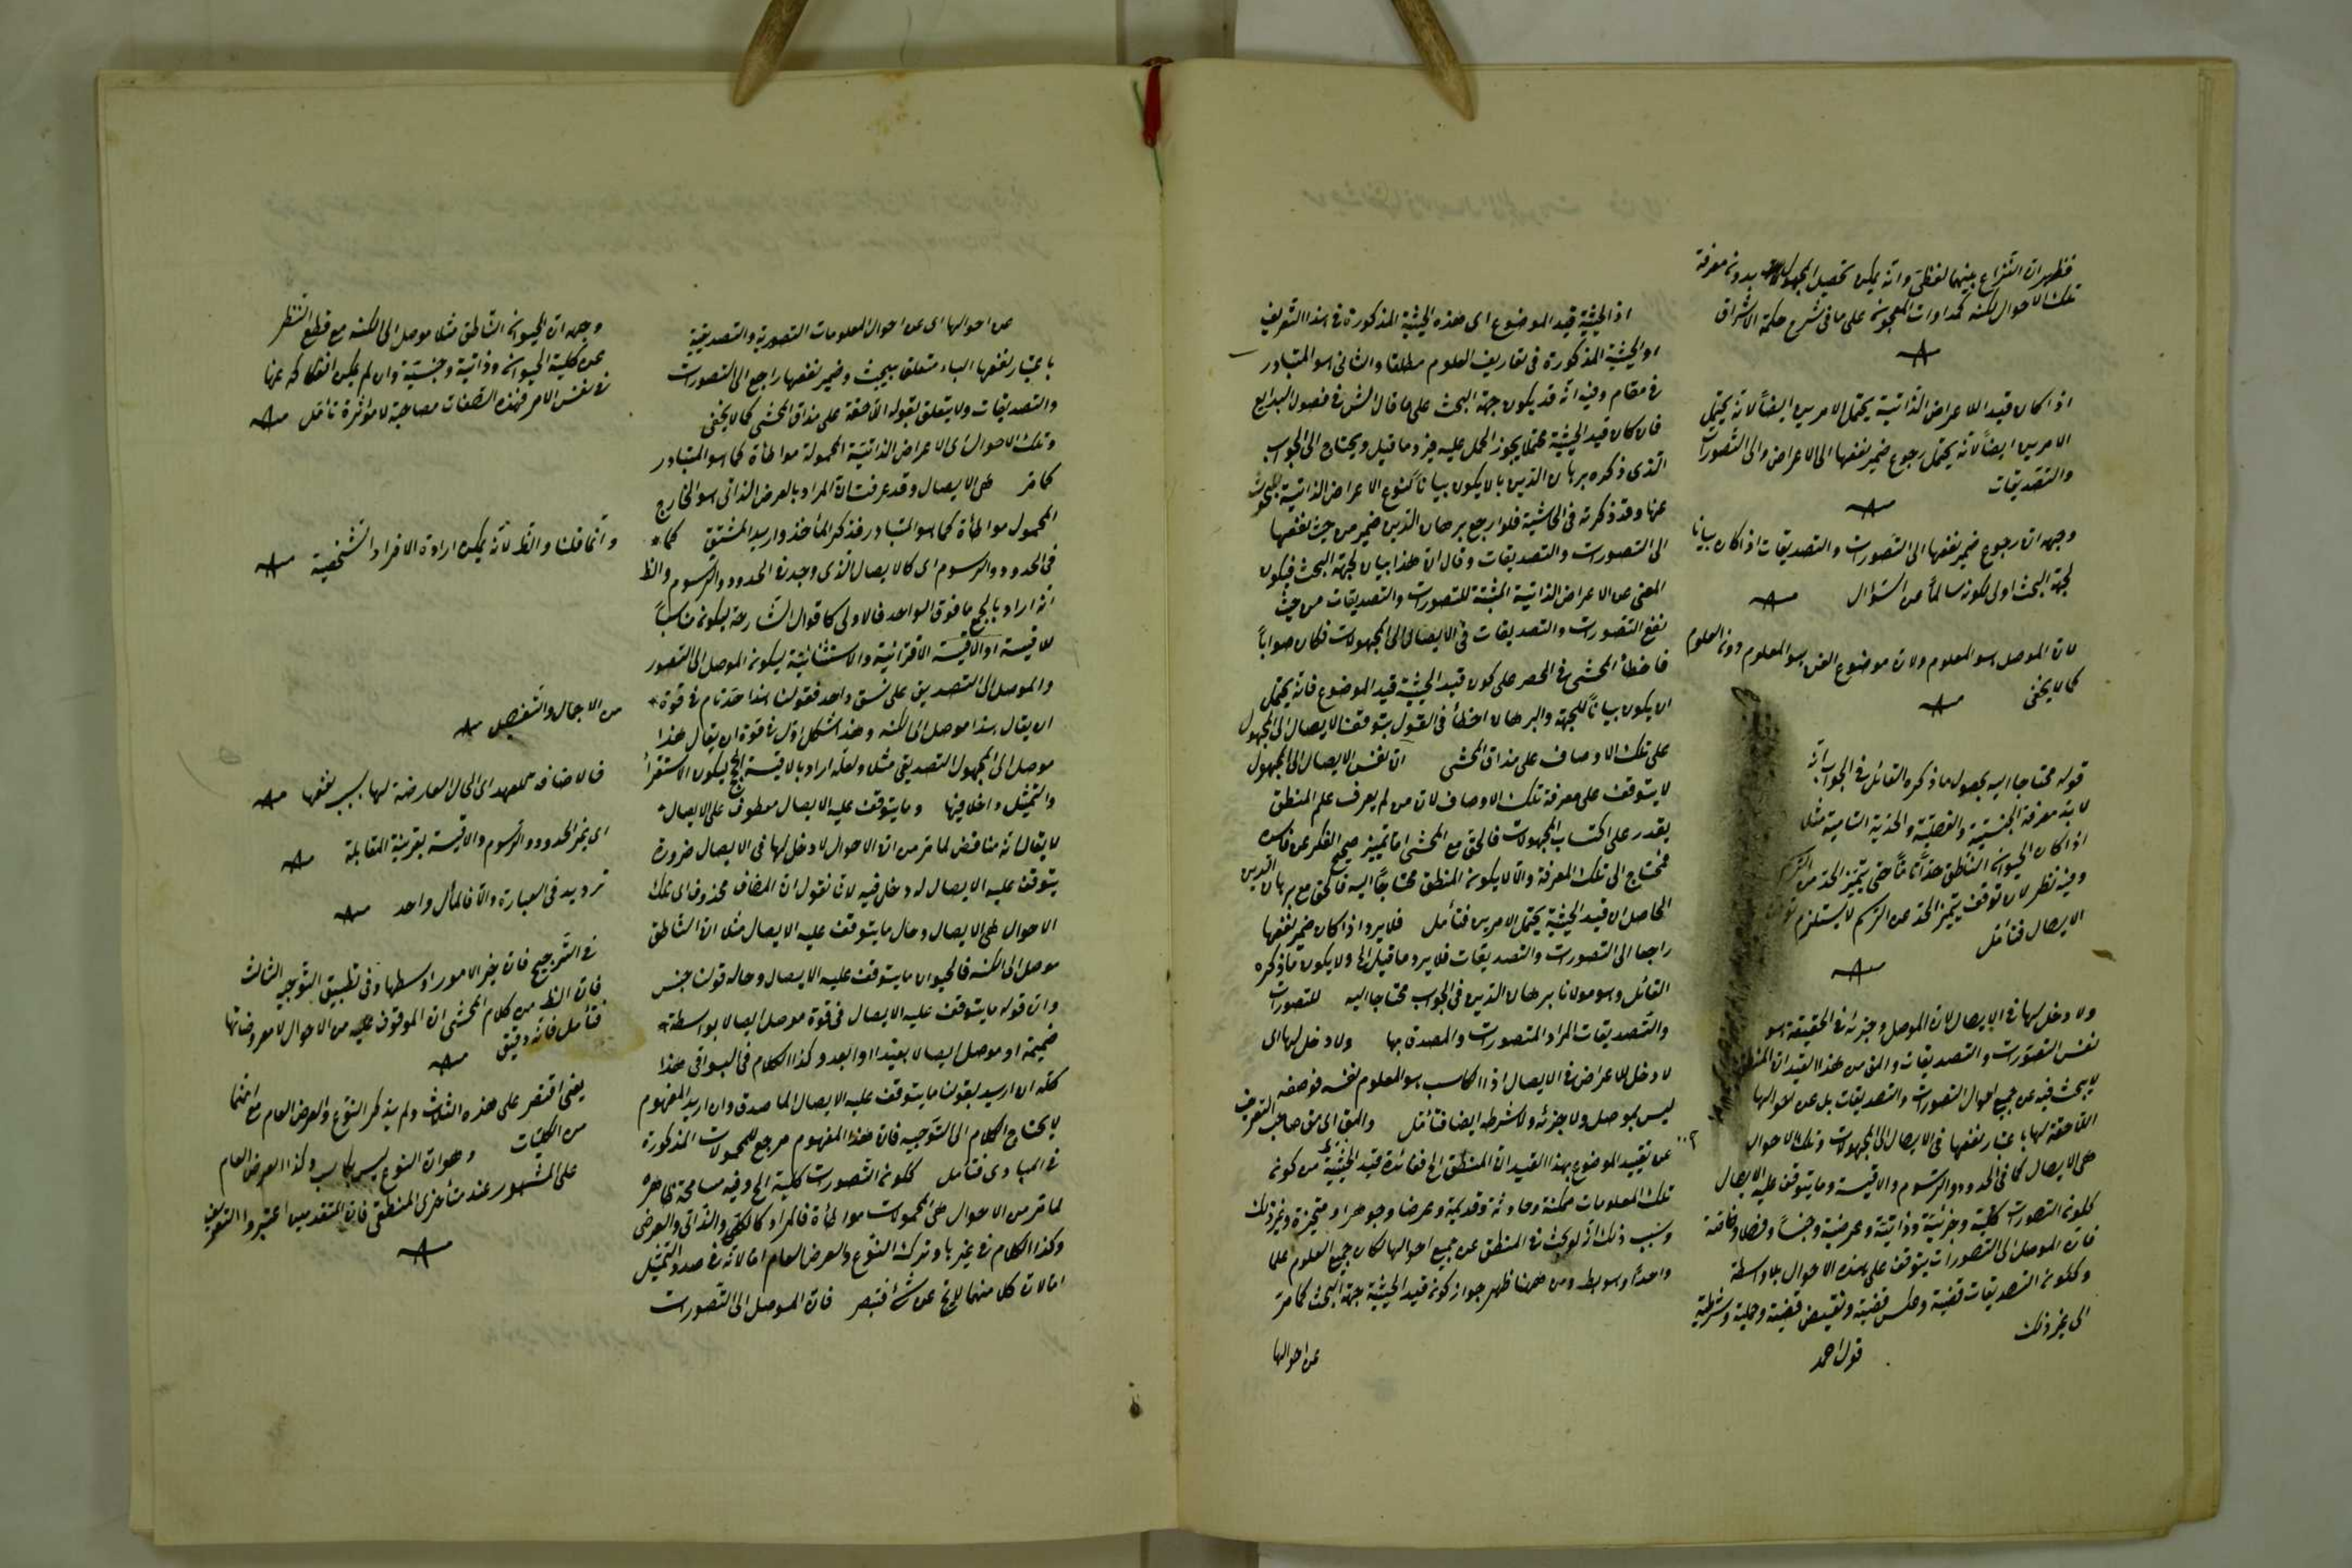 فظهر ان النزاع بينهما لفظي وانه يمكن تحصيل المجهولات بدون معرفة
تلك الاحوال لكنه كمداوات العجوز على ما في شرح حكمة الاشراق
اذا كان قيد الاعراض الذاتية يحتمل الامرين ايضاً لانه يحتمل
الامرين ايضاً لانه يحتمل رجوع ضمير نفعها الى الاعراض والى التصورات
والتصديقات
وجهه ان رجوع ضمير نفعها الى التصورات والتصديقات اذا كان بيانا
لجهة البحث اولى لكونه سالماً من السؤال
لان الموصل هو المعلوم ولان موضوع الفن هو المعلوم دون العلوم
كما لا يخفى
قوله محتاجا اليه بحصول ما ذكره القائل في الجواب انه
لا بد معرفة الجنسية والفصلية والحدية التامية مثلا
اذا كان الحيوان الناطق حداً تاماً حتى يتميز الحد من الرسم
وفيه نظر لان توقف تميز الحد عن الرسم لا يستلزم توقف
الايصال فتأمل
ولا دخل لها في الايصال لان الموصل وجزئه في الحقيقة هو
نفس التصورات والتصديقات والمق من هذا القيد ان المنطقي
لا يبحث فيه عن جميع احوال التصورات والتصديقات بل عن احوالها
اللاحقة لها باعتبار نفعها في الايصال الى المجهولات وتلك الاحوال
هي الايصال كما في الحدود والرسوم والاقيسة وما يتوقف عليه الايصال
ككون التصورات كلية وجزئية وذاتية وعرضية وجنساً وفصلا وخاصة
فان الموصل الى التصورات يتوقف على هذه الاحوال بلا واسطة
وككون التصديقات قضية وعكس قضية ونقيض قضية وحملية وشرطية
الى غير ذلك
قول احمد
اذ الحيثية قيد الموضوع اى هذه الحيثية المذكورة في هذا التعريف
او الحيثية المذكورة في تعاريف العلوم مطلقا والثاني هو المتبادر
في مقام وفيه انه قد يكون جهة البحث على ما قال الش في فصول البدايع
فان كان قيد الحيثية محتملا يجوز الحمل عليه فيرد ما قيل ويحتاج الى الجواب
الذى ذكره برهان الدين بالايكون بياناً لنوع الاعراض الذاتية المبحوث
عنها وقد ذكرته في الحاشية فلو ارجع برهان الدين ضمير من حيث نفعها
الى التصورات والتصديقات وقال ان هذا بيان لجهة البحث فيكون
المعنى من الاعراض الذاتية المثبتة للتصورات والتصديقات من حيث
نفع التصورات والتصديقات في الايصال الى المجهولات فكان صواباً
فاخطأ المحشى في الحصر على كون قيد الحيثية قيد الموضوع فانه يحتمل
ان يكون بياناً للجهة والبرهان اخطأ في القول بتوقف الايصال الى المجهول
على تلك الاوصاف على مذاق المحشى اذ نفس الايصال الى المجهول
لا يتوقف على معرفة تلك الاوصاف لان من لم يعرف علم المنطق
يقدر على اكتساب المجهولات فالحق مع المحشى اما تمييز صحيح الفكر عن فاسده
فمحتاج الى تلك المعرفة والا لا يكون المنطق محتاجاً اليه فالحق مع برهان الدين
الحاصل ان قيد الحيثية يحتمل الامرين فتأمل فلا يرد اذا كان ضمير نفعها
راجعا الى التصورات والتصديقات فلا يرد ما قيل الخ ولا يكون ما ذكره
القائل وهو مولانا برهان الدين في الجواب محتاجا اليه للتصورات
والتصديقات المراد المتصورات والمصدق بها ولا دخل لها اى
لا دخل للاعراض في الايصال اذ الكاسب هو المعلوم نفسه فوصفه
ليس بموصل ولا جزئه ولا شرطه ايضا فتأمل والمق اى مق صاحب التعريف
عن تقييد الموضوع بهذا القيد ان المنطق الخ ففائدة قيد الحيثية من كون
تلك المعلومات ممكنة وحادثة وقديمة وعرضا وجوهرا ومتحيزة وغير ذلك
وسبب ذلك انه لو بحث في المنطق عن جميع احوالها لكان جميع العلوم علما
واحداً وهو بط ومن ههنا ظهر جواز كون قيد الحيثية جهة البحث كما مر
عن احوالها
من احوالها اى عن احوال المعلومات التصورية والتصديقية
باعتبار نفعها الباء متعلق بيبحث وضمير نفعها راجع الى التصورات
والتصديقات ولا يتعلق بقوله اللاحقة على مذاق المحشى كما لا يخفى
وتلك الاحوال اى الاعراض الذاتية المحمولة مواطأة كما هو المتبادر
كما مر هى الايصال وقد عرفت ان المراد بالعرض الذاتى هو الخارج
المحمول مواطأة كما هو المتبادر فذكر المأخذ واريد المشتق كما
في الحدود والرسوم اى كالايصال الذى وجد في الحدود والرسوم والظ
انه اراد بالجمع ما فوق الواحد فالاولى كا قوال الشارحة ليكون مناسباً
للاقيسة او الاقيسة الاقترانية والاستثنائية ليكون الموصل الى التصور
والموصل الى التصديق على نسق واحد فقولنا هذا حد تام في قوة
ان يقال هذا موصل الى الكنه وهذا شكل اول في قوة ان يقال هذا
موصل الى المجهول التصديقى مثلا ولعله اراد بالاقيسة الحجج ليكون الاستقرأ
والتمثيل داخلا فيها وما يتوقف عليه الايصال معطوف على الايصال
لا يقال انه مناقض لما مر من ان الاحوال لا دخل لها في الايصال ضرورة
يتوقف عليه الايصال له دخل فيه لان نقول ان المضاف محذوف اى تلك
الاحوال هى الايصال وحال ما يتوقف عليه الايصال مثلا ان الناطق
موصل الى الكنه فالحيوان ما يتوقف عليه الايصال وحاله قولنا جنس
وان قوله ما يتوقف عليه الايصال في قوة موصل ايصالا بواسطة
ضميمة او موصل ايصالا بعيدا او ابعد وكذا الكلام في البواقى هذا
كله ان اريد بقولنا ما يتوقف عليه الايصال الماصدق وان اريد المفهوم
لا يحتاج الكلام الى التوجيه فان هذا المفهوم مرجع للمحمولات المذكورة
في المبادى فتأمل ككون التصورات كلية الخ وفيه مسامحة ظاهرة
لما مر من الاحوال هى المحمولات مواطأة فالمراد كالكلى والذاتى والعرضى
وكذا الكلام في غيرها وترك النوع والعرض العام اما لانه في صدد التمثيل
اما لان كلا منهما لا يخ عن شئ فتبصر فان الموصل الى التصورات
وجهه ان الحيوان الناطق مثلا موصل الى الكنه مع قطع النظر
عن كلية الحيوان وذاتية وجنسية وان لم يمكن انفكاكه عنها
في نفس الامر فهذه الصفات مصاحبة لا مؤثرة تأمل
وانما قلنا والظ لانه يمكن ارادة الافراد الشخصية
من الاجمال والتفصيل
فالاضافة للعهد اى الحال العارضة لها بسبب نفعها
اى غير الحدود والرسوم والاقيسة بقرينة المقابلة
ترديد في العبارة والا فالمأل واحد
في الترجيح فان خير الامور اوسطها وفي تطبيق التوجيه الثالث
فان الظ من كلام المحشى ان الموقوف عليه من الاحوال لا معروضاتها
فتأمل فانه دقيق
يعنى اقتصر على هذه الثلاث ولم يذكر النوع والعرض العام مع انهما
من الكليات وهو ان النوع ليس بكاسب وكذا العرض العام
على المشهور عند متأخرى المنطقى فان المتقدمين اعتبروا التعريف